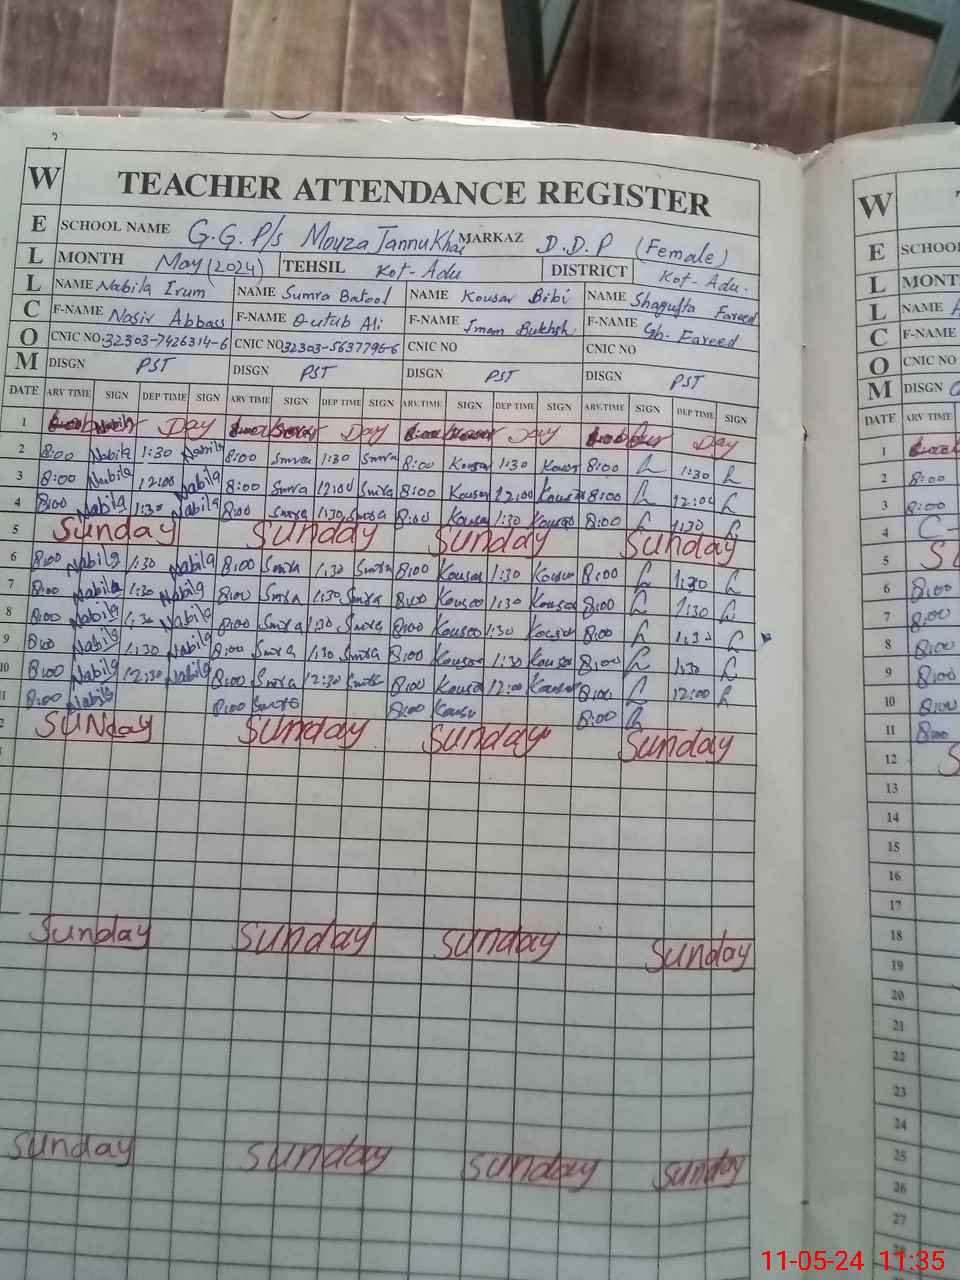 W TEACHER ATTENDANCE REGISTER
E SCHOOL NAME G.G. P/s Mouza Jannu Khai MARKAZ D.D.P (Female)
L MONTH May (2024) TEHSIL Kot-Adu DISTRICT Kot-Adu.
L NAME Nabila Irum NAME Sumra Batool NAME Kousar Bibi NAME Shagufta Fareed
C F-NAME Nasir Abbass F-NAME Qutub Ali F-NAME Imam Bukhsh F-NAME Gh. Fareed
O CNIC NO. 32303-7426314-6 CNIC NO 32303-5637796-6 CNIC NO CNIC NO
M DISGN PST DISGN PST DISGN PST DISGN PST
DATE ARV TIME SIGN DEP TIME SIGN ARV TIME SIGN DEP TIME SIGN ARV.TIME SIGN DEP TIME SIGN ARV.TIME SIGN DEP TIME SIGN
1 Day Day Day Day
2 8:00 Nabila 1:30 Nabila 8:00 Smra 1:30 Smra 8:00 Kousar 1:30 Kousar 8:00 1:30
3 8:00 Nabila 12:00 Nabila 8:00 Smra 12:00 Smra 8:00 Kousar 12:00 Kousar 8:00 12:00
4 8:00 Nabila 1:30 Nabila 8:00 Smra 1:30 Smra 8:00 Kousar 1:30 Kousar 8:00 1:30
5 Sunday Sunday Sunday Sunday
6 8:00 Nabila 1:30 Nabila 8:00 Smra 1:30 Smra 8:00 Kousar 1:30 Kousar 8:00 1:30
7 8:00 Nabila 1:30 Nabila 8:00 Smra 1:30 Smra 8:00 Kousar 1:30 Kousar 8:00 1:30
8 8:00 Nabila 1:30 Nabila 8:00 Smra 1:30 Smra 8:00 Kousar 1:30 Kousar 8:00 1:30
9 8:00 Nabila 1:30 Nabila 8:00 Smra 1:30 Smra 8:00 Kousar 1:30 Kousar 8:00 1:30
10 8:00 Nabila 12:30 Nabila 8:00 Smra 12:30 Smra 8:00 Kousar 12:00 Kousar 8:00 12:00
8:00 Nabila 8:00 Smra 8:00 Kousar 8:00
SUNday Sunday Sunday Sunday
Sunday Sunday Sunday Sunday
Sunday Sunday Sunday Sunday
W
E SCHOOL
L MONTH
L NAME
C F-NAME
O CNIC NO
M DISGN
DATE ARV TIME
1
2 8:00
3 8:00
4
5
6 8:00
7 8:00
8 8:00
9 8:00
10 8:00
11 8:00
12
13
14
15
16
17
18
19
20
21
22
23
24
25
26
27
11-05-24 11:35